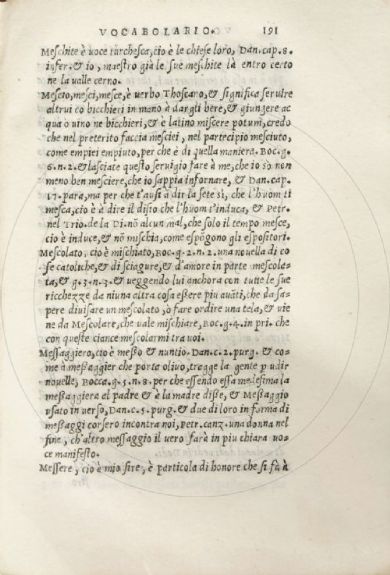 VOCABOLARIO. 191
Meschite è uoce turchesca, cio è le chiese loro, Dan. cap. 8.
infer. & io, maestro gia le sue meschite là entro certo
ne la ualle cerno.
Mescio, mesci, mesce, è uerbo Thoscano, & significa seruire
altrui co bicchieri in mano à dargli bere, & giungere ac
qua o uino ne bicchieri, & è latino miscere potum, credo
che nel preterito faccia mesciei, nel partecipio mesciuto,
come empiei empiuto, per che è di quella maniera. Boc. g.
6. n. 2. & lasciate questo seruigio fare à me, che io sò non
meno ben mesciere, che io sappia infornare, & Dan. cap.
17. para, ma per che t'ausi à dir la sete sì, che l'huom ti
mesca, cio è à dire il disio che l'huom t'induca, & Petr.
nel Trio. de la Di. nõ alcun mal, che solo il tempo mesce,
cio è induce, & nõ mischia, come espõgono gli espositori.
Mescolato, cio è mischiato, Boc. g. 2. n. 2. una nouella di co
se catoliche, & di sciagure, & d'amore in parte mescola-
ta, & g. 3. n. 3. & ueggendo lui anchora con tutte le sue
ricchezze da niuna altra cosa eßere piu auãti, che da sa-
pere diuisare un mescolato, ò fare ordire una tela, & uie
ne da Mescolare, che uale mischiare, Boc. g. 4. in pri. che
con queste ciance mescolarmi tra uoi.
Meßaggiero, cio è meßo & nuntio. Dan. c. 2. purg. & co-
me à meßaggier che porto oliuo, tragge la gente p udir
nouelle, Bocca. g. 5. n. 8. per che essendo essa medesima la
meßaggiera al padre & à la madre diße, & Meßaggio
usato in uerso, Dan. c. 5. purg. & due di loro in forma di
meßaggi corsero incontra noi, Petr. canz. una donna nel
fine, ch'altro messaggio il uero farà in piu chiara uo-
ce manifesto.
Messere, cio è mio sire, è particola di honore che si fà à